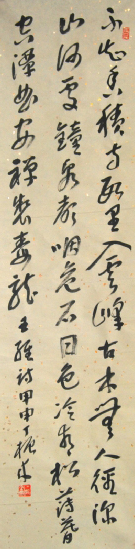 不知香積寺數里入雲峰古木無人徑深
山何處鐘泉聲咽危石日色冷青松薄暮
空潭曲安禪制毒龍 王維詩甲申丁